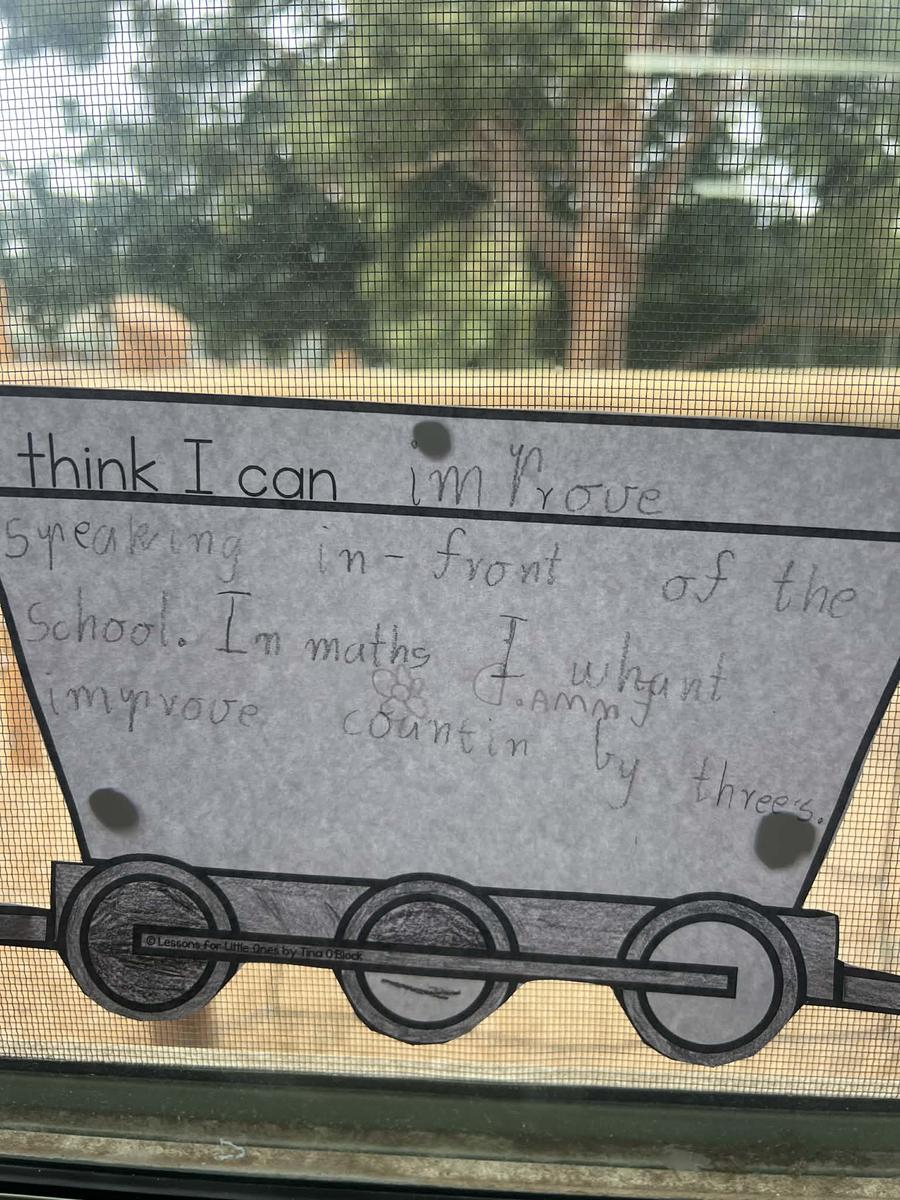 think I can imProve
Speaking in-front of the
School. In maths I whant
improve countin by three's.
© Lessons for Little Ones by Tina O'Block